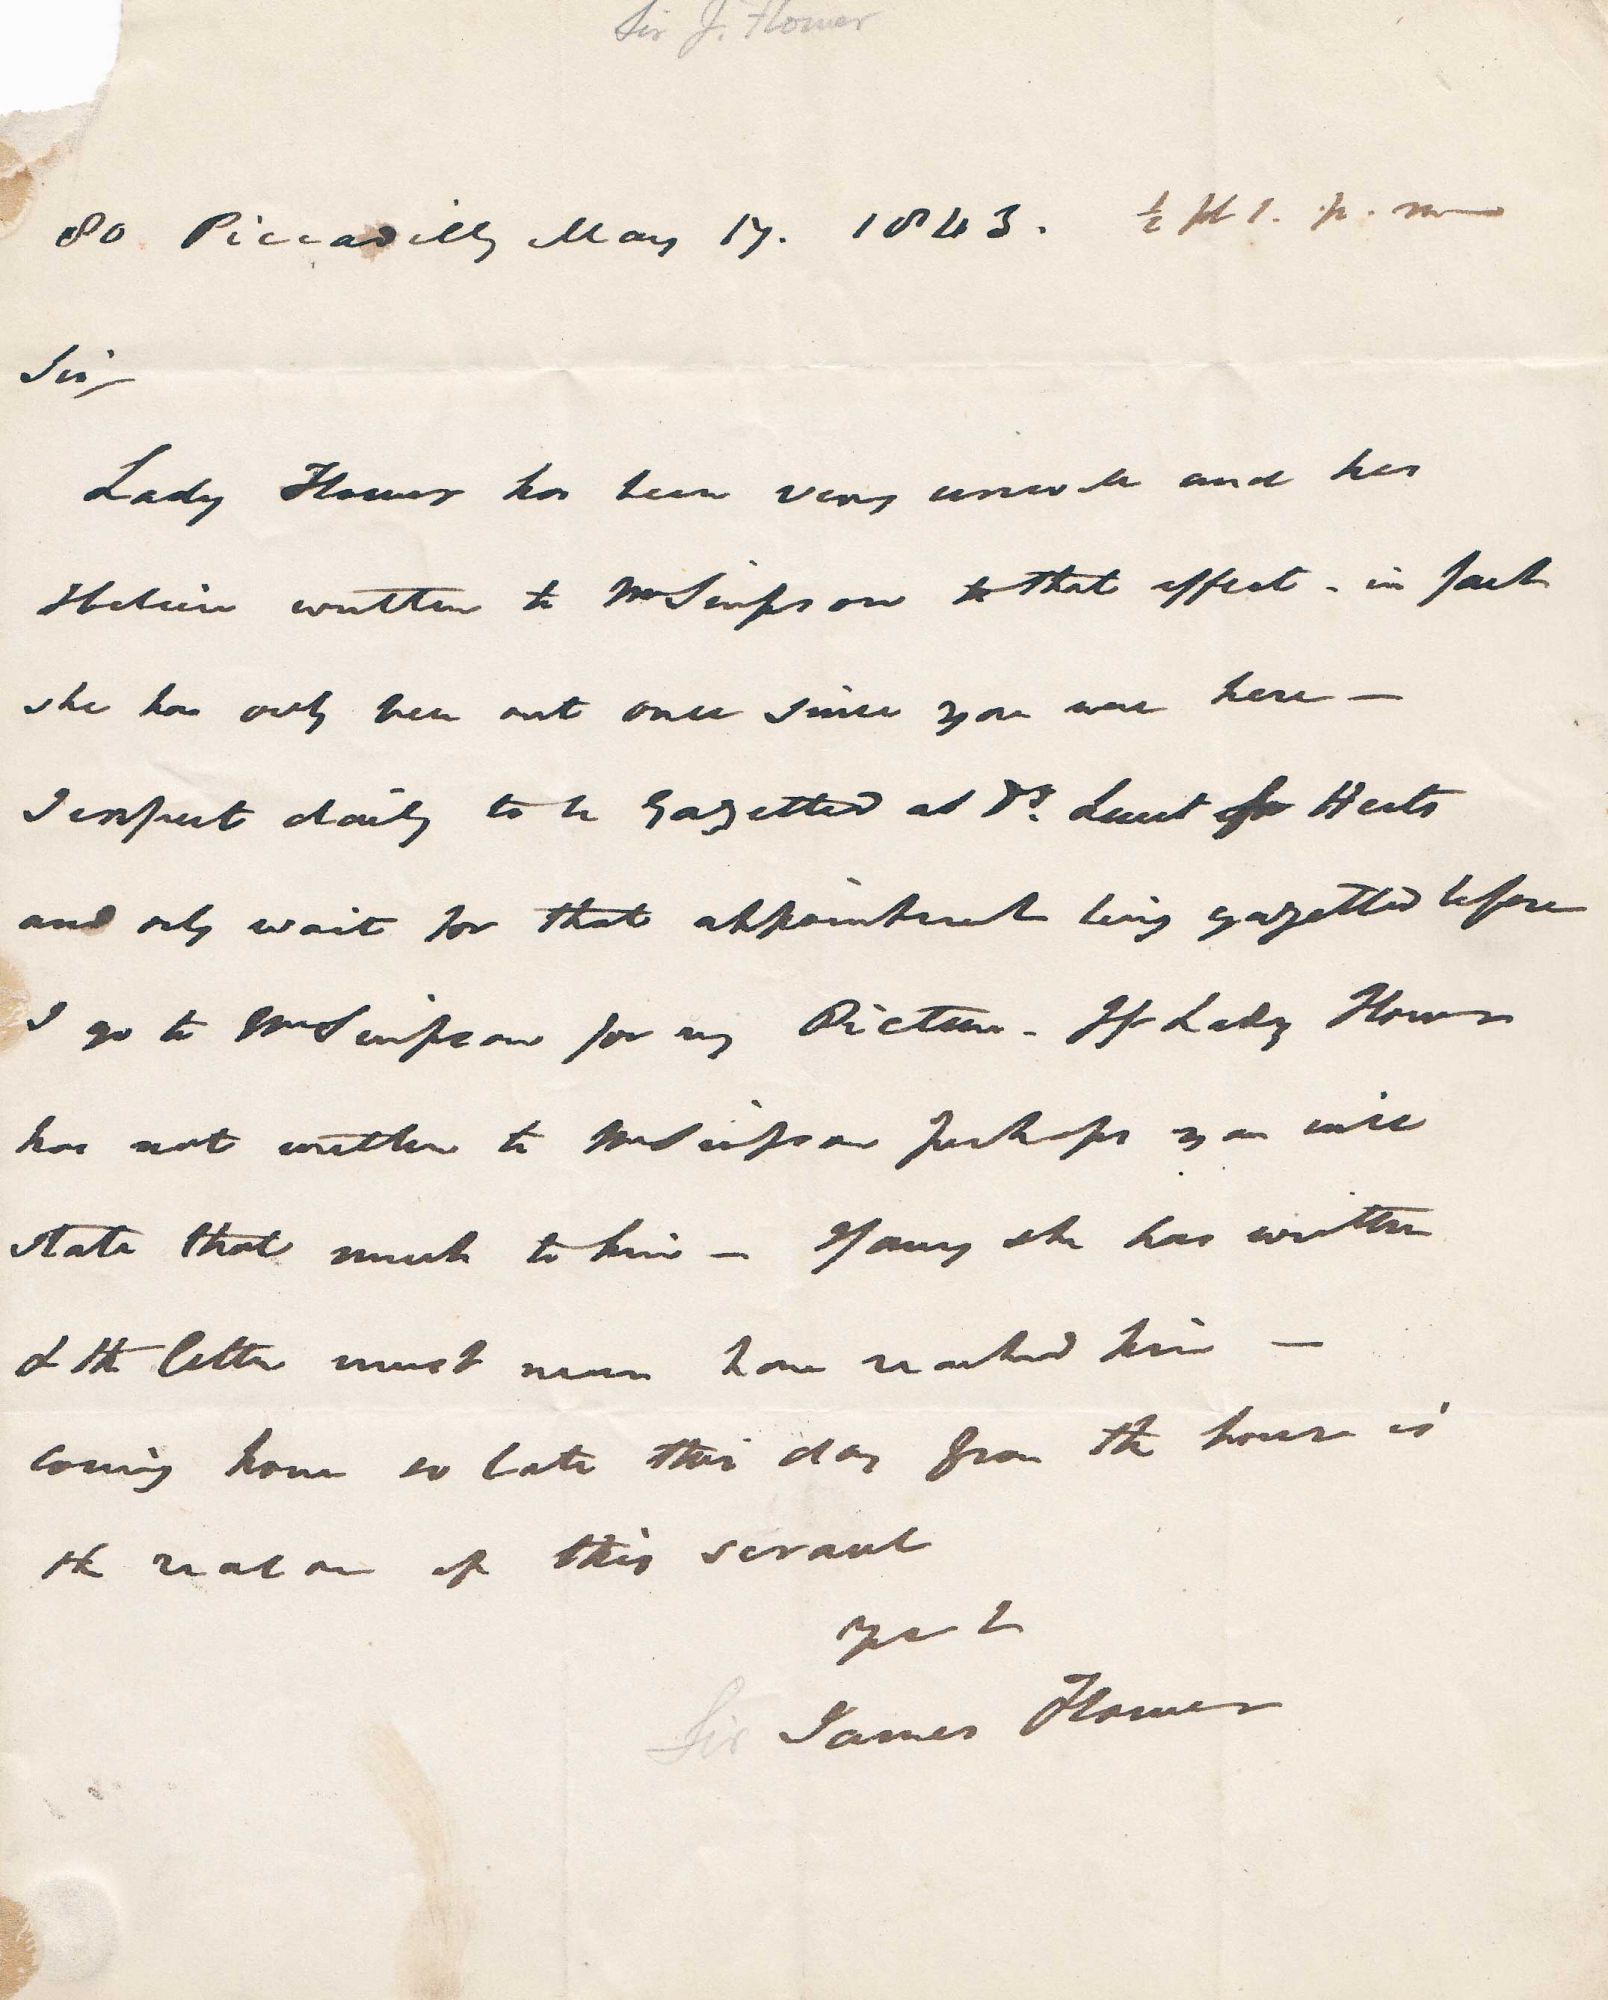 Sir J. Flower
80 Piccadilly May 17. 1843. ½ pt 1. p. m
Sir/
Lady Flower has been very unwell and has
I believe written to Mr Simpson to that effect - in fact
she has only been out once since you were here -
I expect daily to be Gazetted as Dy. Lieut for Herts
and only wait for that appointment being gazetted before
I go to Mr Simpson for my Picture - If Lady Flower
has not written to Mr Simpson perhaps you will
state that much to him - I fancy she has written
& the letter must now have reached him -
coming home so late this day from the house is
the reason of this scrawl
James Flower
Sir